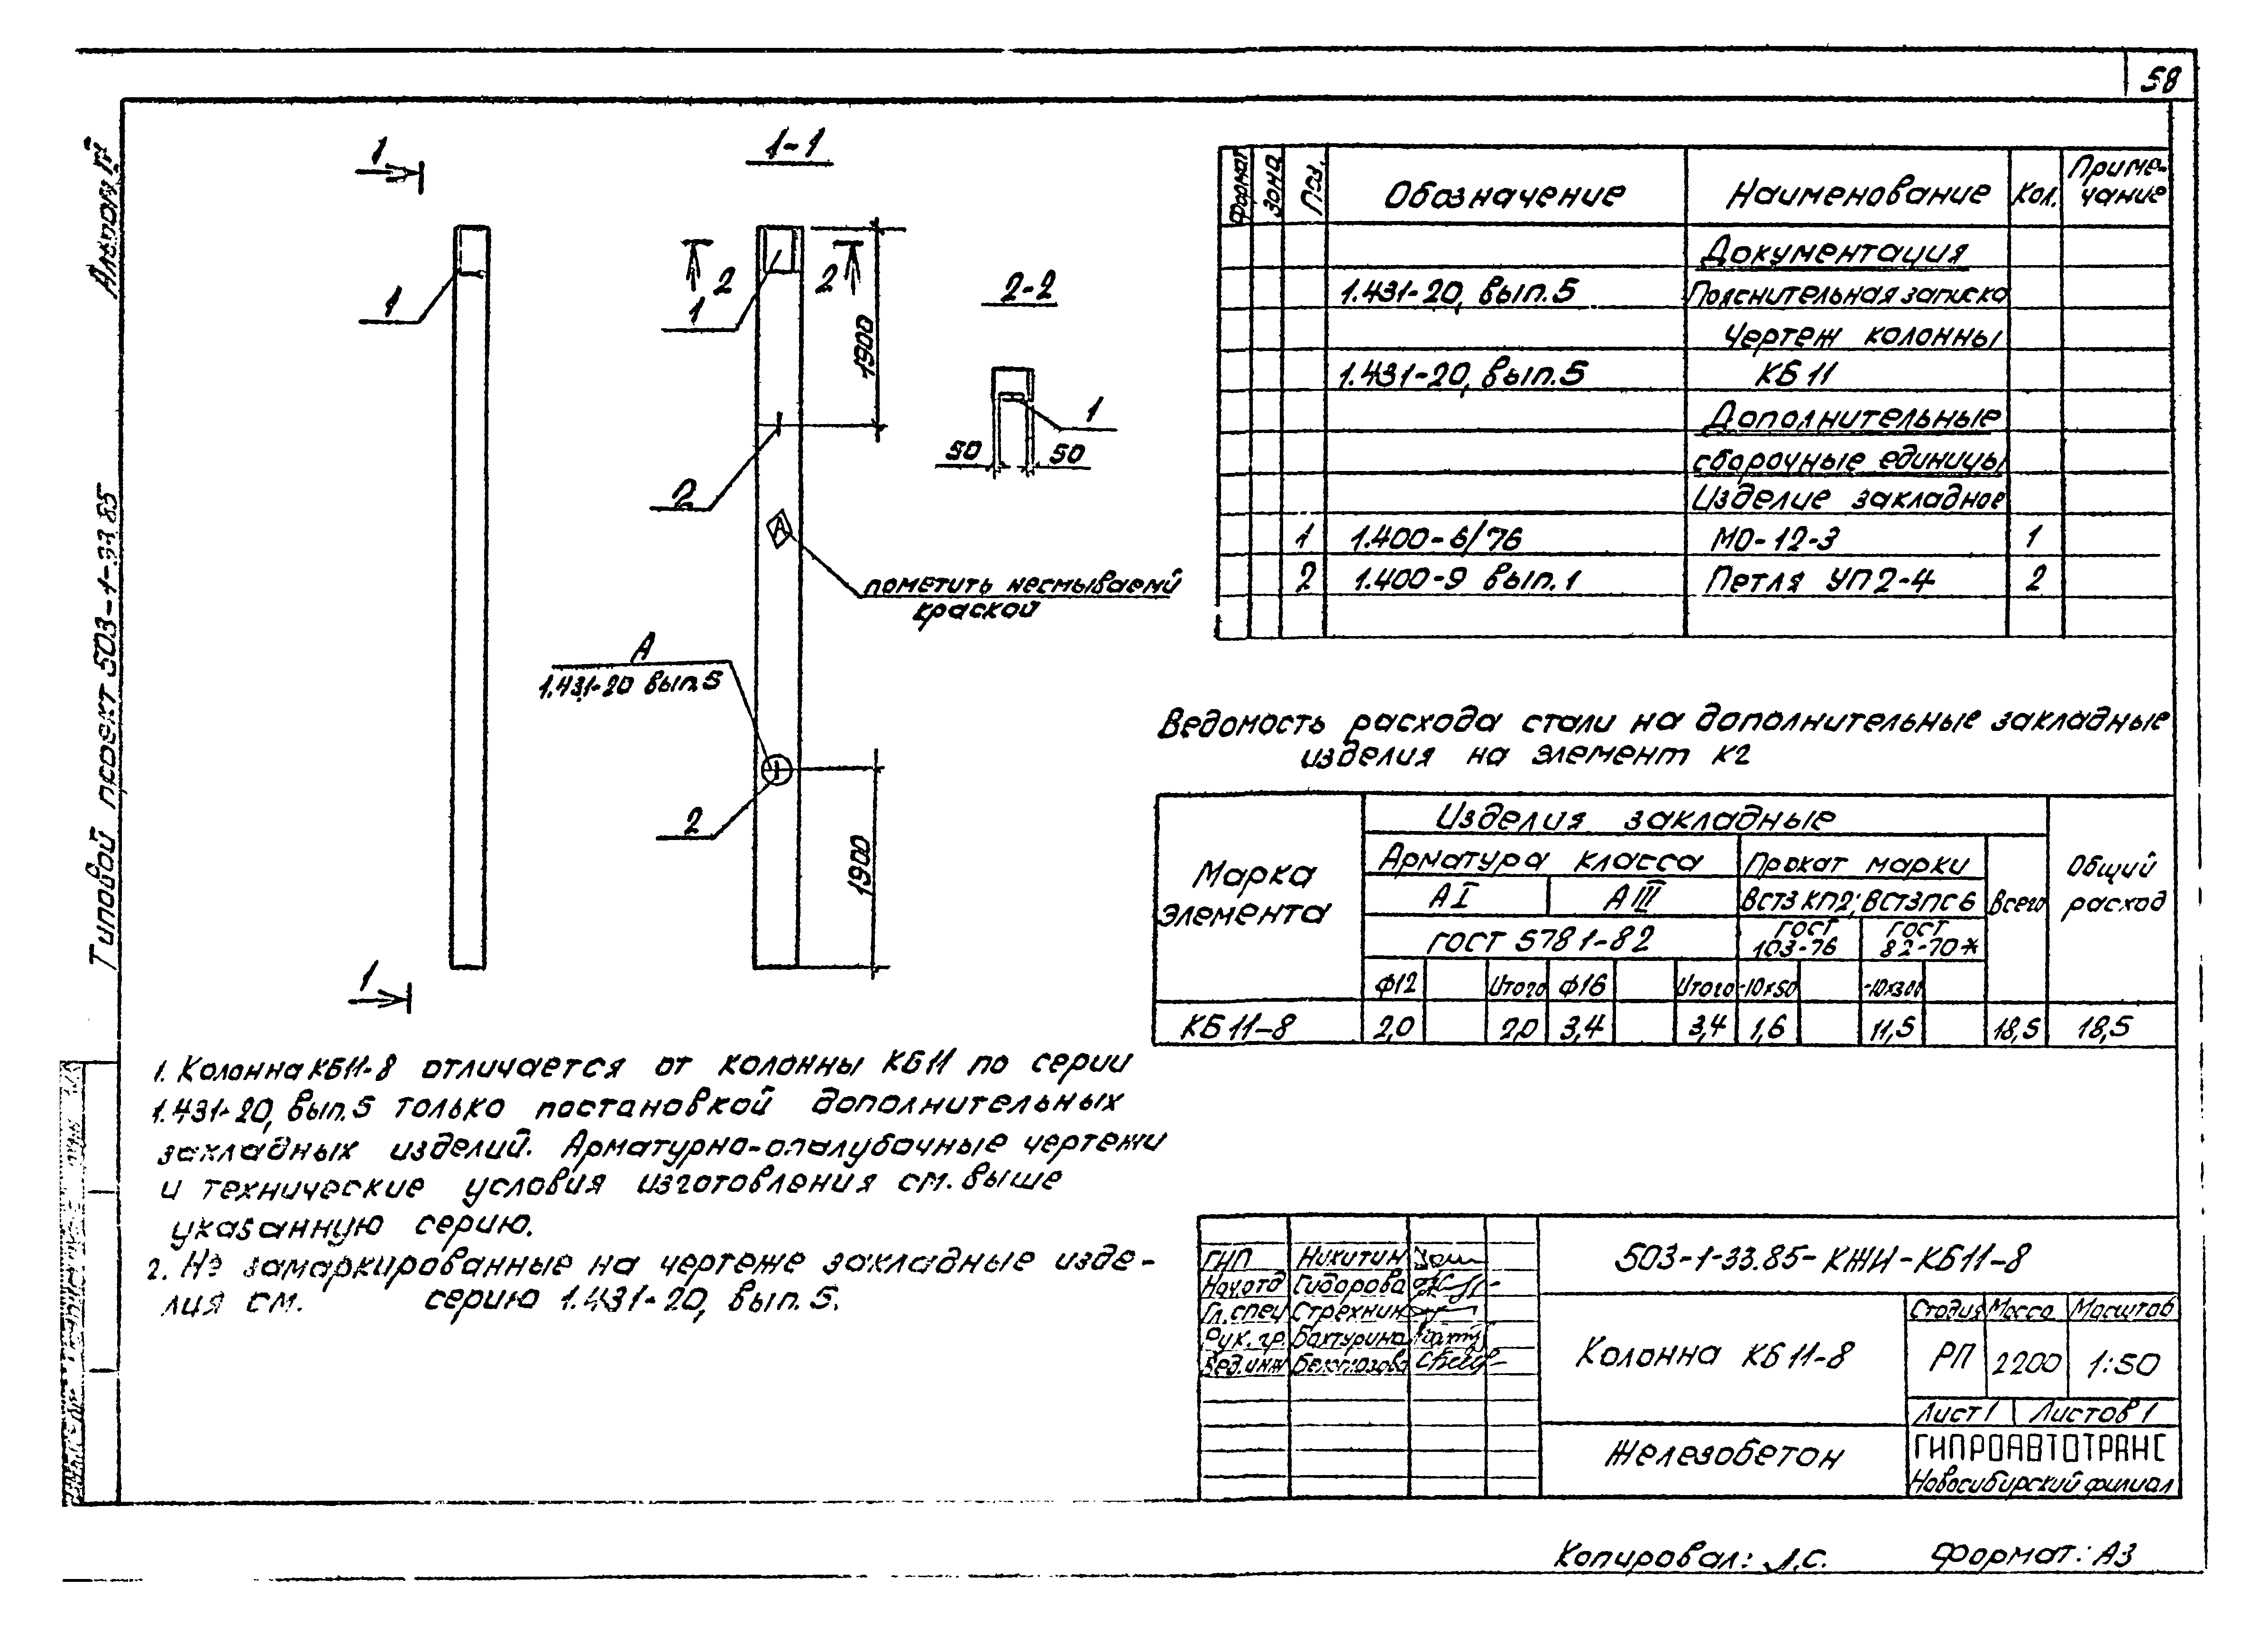 58
Альбом IV
Типовой проект 503-1-33.85
1
1-1
1
2
1
2
1900
2-2
1
50
50
2
А
пометить несмываемй
краской
А
1.431-20 вып.5
2
1900
1
Формат
Зона
Поз.
Обозначение
Наименование
Кол.
Приме-
чание
Документация
1.431-20, вып.5 Пояснительная записка
Чертеж колонны
1.431-20, вып.5 КБ 11
Дополнительные
сборочные единицы
Изделие закладное
1 1.400-6/76 МО-12-3 1
2 1.400-9 вып.1 Петля УП2-4 2
Ведомость расхода стали на дополнительные закладные
изделия на элемент К2
Марка
элемента
Изделия закладные
Общий
расход
Арматура класса Прокат марки
Всего
А I А III ВСТ3 КП2; ВСТ3ПС6
ГОСТ 5781-82
ГОСТ
103-76
ГОСТ
82-70*
Ф12 Итого Ф16 Итого -10х50 -10х300
КБ 11-8 2,0 2,0 3,4 3,4 1,6 11,5 18,5 18,5
1. Колонна КБ11-8 отличается от колонны КБ11 по серии
1.431-20, вып.5 только постановкой дополнительных
закладных изделий. Арматурно-опалубочные чертежи
и технические условия изготовления см. выше
указанную серию.
2. Не замаркированные на чертеже закладные изде-
лия см. серию 1.431-20, вып.5.
ГИП Никитин
Нач.отд Сидорова
Гл.спец Стрехнин
Рук.гр. Бахтурина
Вед.инж
503-1-33.85-КЖИ-КБ11-8
Колонна КБ 11-8
Стадия Масса Масштаб
РП 2200 1:50
Лист 1 Листов 1
Железобетон
ГИПРОАВТОТРАНС
Новосибирский филиал
Копировал: Л.С. Формат: А3